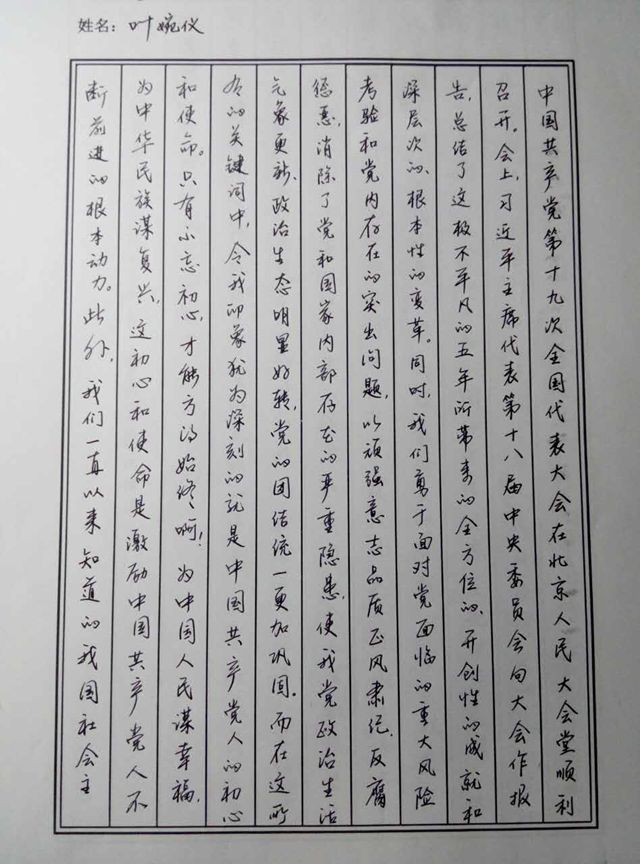 姓名：叶婉仪
中国共产党第十九次全国代表大会在北京人民大会堂顺利
召开。会上，习近平主席代表第十八届中央委员会向大会作报
告，总结了这极不平凡的五年所带来的全方位的、开创性的成就和
深层次的、根本性的变革。同时，我们勇于面对党面临的重大风险
考验和党内存在的突出问题，以顽强意志品质正风肃纪、反腐
惩恶，消除了党和国家内部存在的严重隐患，使我党政治生活
气象更新，政治生态明显好转，党的团结统一更加巩固。而在这所
有的关键词中，令我印象犹为深刻的就是中国共产党人的初心
和使命。只有不忘初心，才能方得始终啊！为中国人民谋幸福，
为中华民族谋复兴，这初心和使命是激励中国共产党人不
断前进的根本动力。此外，我们一直以来知道的我国社会主